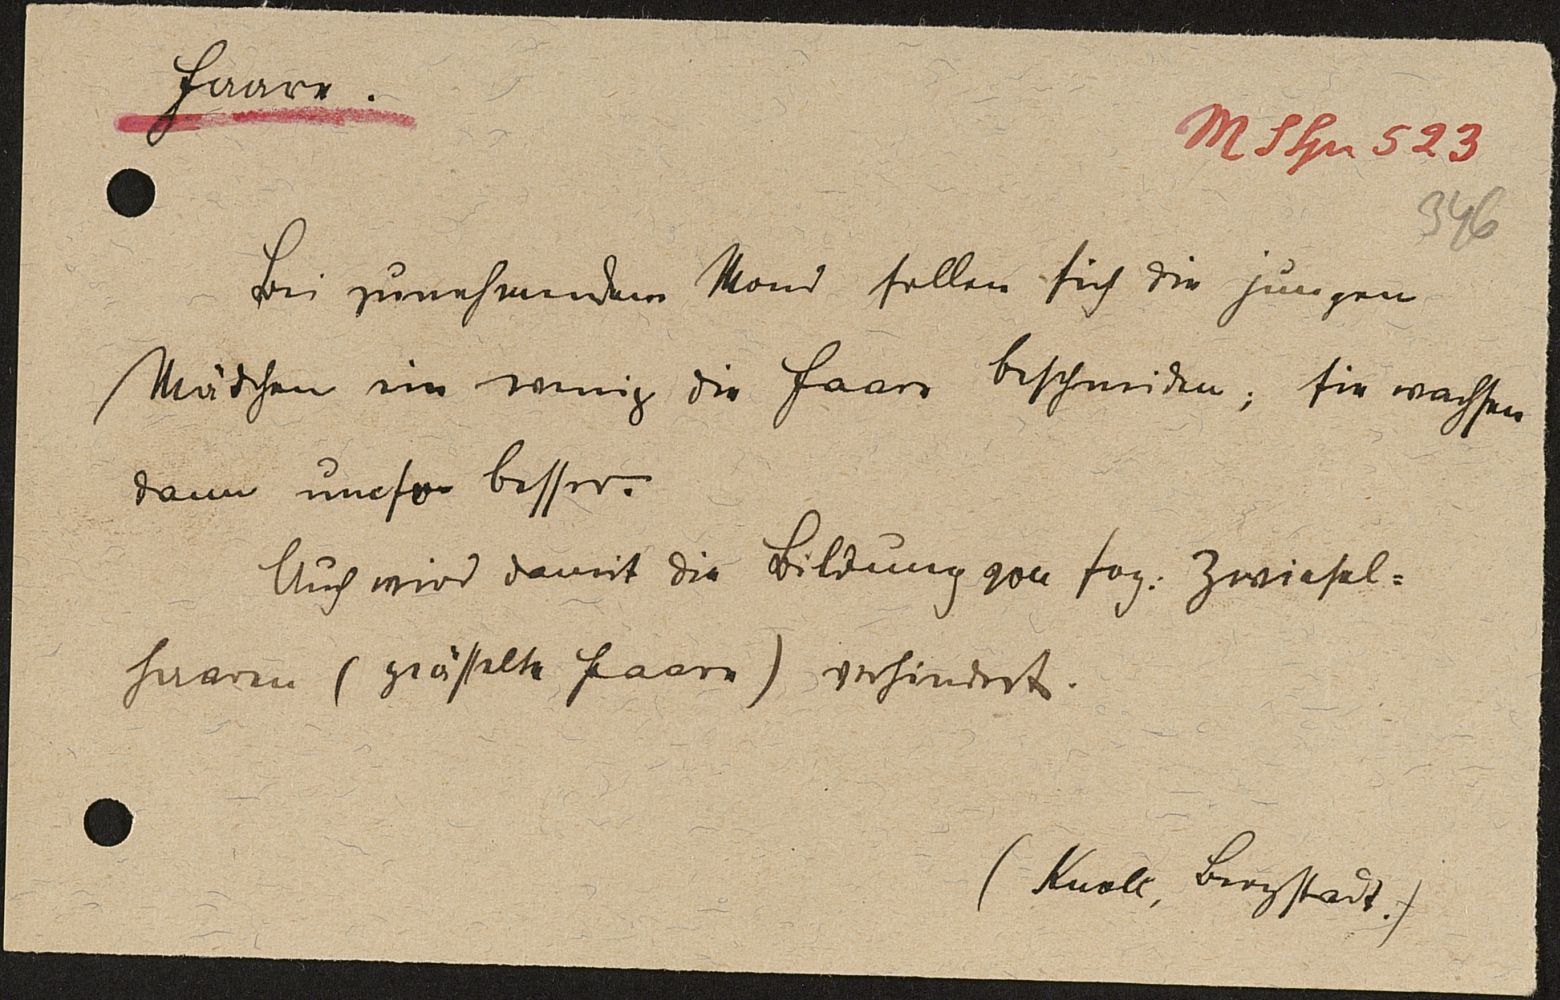 Haare.
M S Hn 523
346
Bei zunehmendem Mond sollen sich die jungen
Mädchen ein wenig die Haare beschneiden; sie wachsen
dann umso besser.
Auch wird damit die Bildung von sog: Zwiesel=
haaren (grässelte Haare) verhindert.
(Knoll, Bergstadt.)